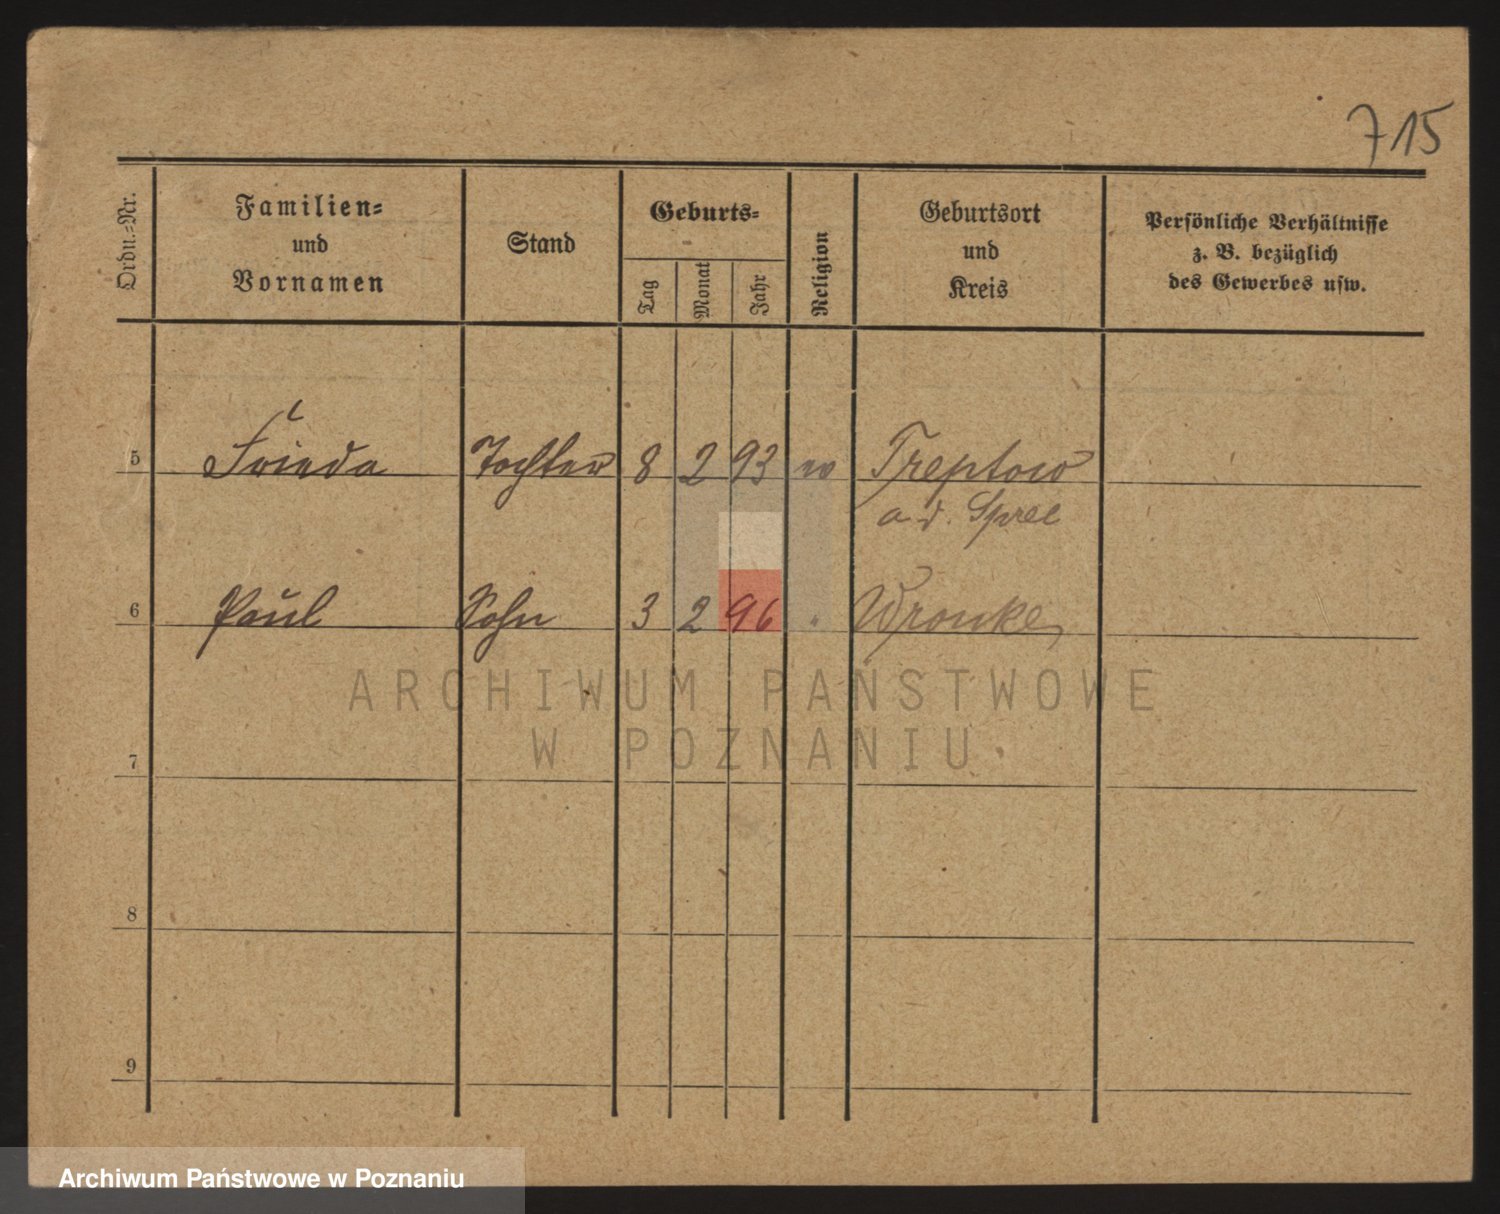 715
Ordn.-Nr.
Familien-
und
Vornamen
Stand
Geburts-
Tag
Monat
Jahr
Religion
Geburtsort
und
Kreis
Persönliche Verhältnisse
z. B. bezüglich
des Gewerbes usw.
5 Frieda Tochter 8 2 93 Treptow
a. d. Spree
6 Paul Sohn 3 2 96 " Wronke
ARCHIWUM PAŃSTWOWE
W POZNANIU
7
8
9
Archiwum Państwowe w Poznaniu